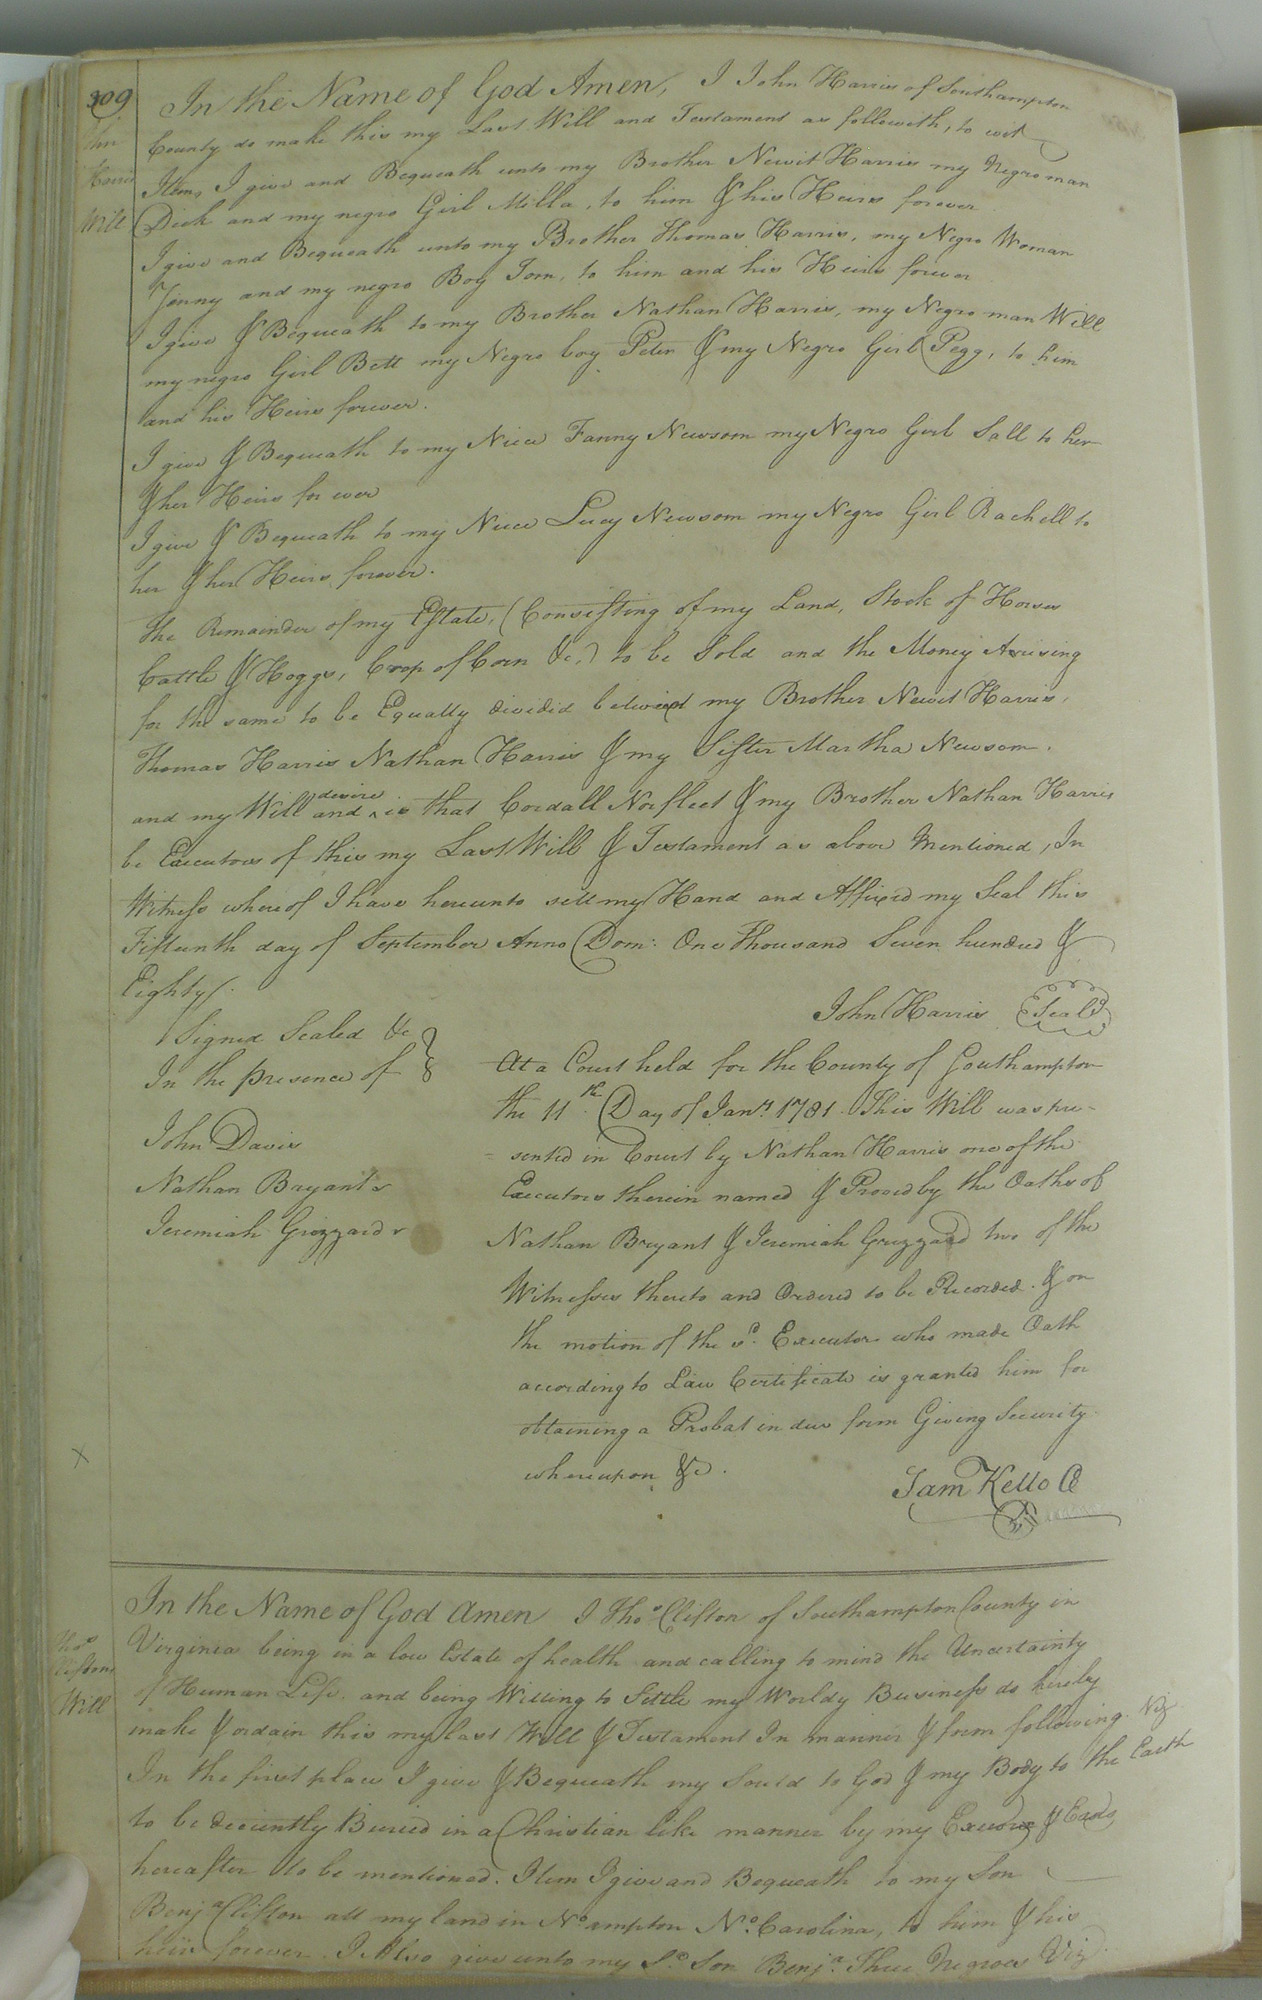 309
Jhn
Harris
Will
In the Name of God Amen, I John Harris of Southampton
County do make this my Last Will and Testament as followeth, to wit
Item, I give and Bequeath unto my Brother Newit Harris my Negro man
Dick and my negro Girl Milla, to him & his Heirs forever
I give and Bequeath unto my Brother Thomas Harris, my Negro Woman
Jenny and my negro Boy Tom, to him and his Heirs forever
I give & Bequeath to my Brother Nathan Harris, my Negro man Will
my negro Girl Bett my Negro boy Peter & my Negro Girl Pegg, to him
and his Heirs forever.
I give & Bequeath to my Niece Fanny Newsom my Negro Girl Sall to her
& her Heirs for ever
I give & Bequeath to my Niece Lucy Newsom my Negro Girl Rachell to
her & her Heirs forever.
The Remainder of my Estate, (Consisting of my Land, Stock of Horses
Cattle & Hoggs, Crop of Corn &c,) to be Sold and the Money Arising
for the same to be Equally divided between my Brother Newit Harris,
Thomas Harris Nathan Harris & my Sister Martha Newsom.
and my Will and ^desire is that Cordall Norfleet & my Brother Nathan Harris
be Executors of this my Last Will & Testament as above Mentioned, In
Witness whereof I have hereunto sett my Hand and Affixed my Seal this
Fifteenth day of September Anno Dom: One Thousand Seven hundred &
Eighty/.
John Harris Seal
Signed Sealed &c
In the presence of
John Davis
Nathan Bryant
Jeremiah Grizzard
At a Court held for the County of Southampton
the 11th Day of Jany. 1781. This Will was pre-
=sented in Court by Nathan Harris one of the
Executors therein named & Proved by the Oaths of
Nathan Bryant & Jeremiah Grizzard two of the
Witnesses thereto and Ordered to be Recorded. & on
the motion of the sd. Executor who made Oath
according to Law Certificate is granted him for
obtaining a Probat in due form Giving Security
whereupon &c.
Sam Kello C
Thos
Cliftons
Will
In the Name of God Amen I Thos. Clifton of Southampton County in
Virginia being in a low Estate of health and calling to mind the Uncertainty
of Human Life. and being Willing to Settle my Worldy Business do hereby
make & ordain this my last Will & Testament In manner & form following. Viz
In the first place I give & Bequeath my Sould to God & my Body to the Earth
to be decently Buried in a Christian like manner by my &
hereafter to be mentioned. Item I give and Bequeath to my Son
Benja Clifton all my land in No.ampton No. Carolina, to him & his
heirs forever. I Also give unto my Sd. Son Benja. Three Negroes Viz